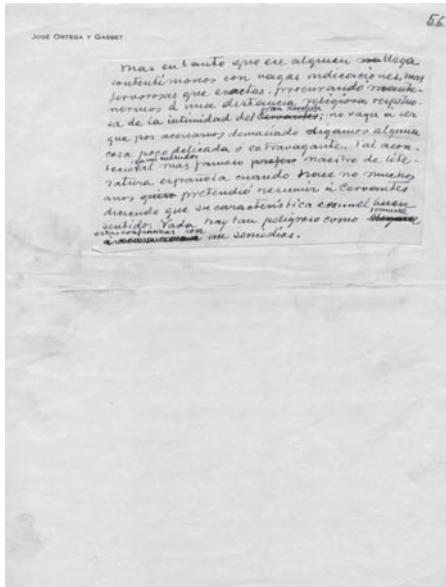 56
JOSÉ ORTEGA Y GASSET
Mas en tanto que ese alguien llega
contentémonos con vagas indicaciones, mas
fervorosas que exactas, procurando mante-
nernos á una distancia religiosa respetuo-
sa de la intimidad del gran novelista; no vaya a ser
que por acercarnos demasiado digamos alguna
cosa poco delicada ó extravagante. Tal acon-
teció al mas famoso maestro de lite-
ratura española cuando hace no muchos
años pretendió resumir á Cervantes
diciendo que su característica era el buen
sentido. Nada hay tan peligroso como tomarse
estas confianzas con un semidios.